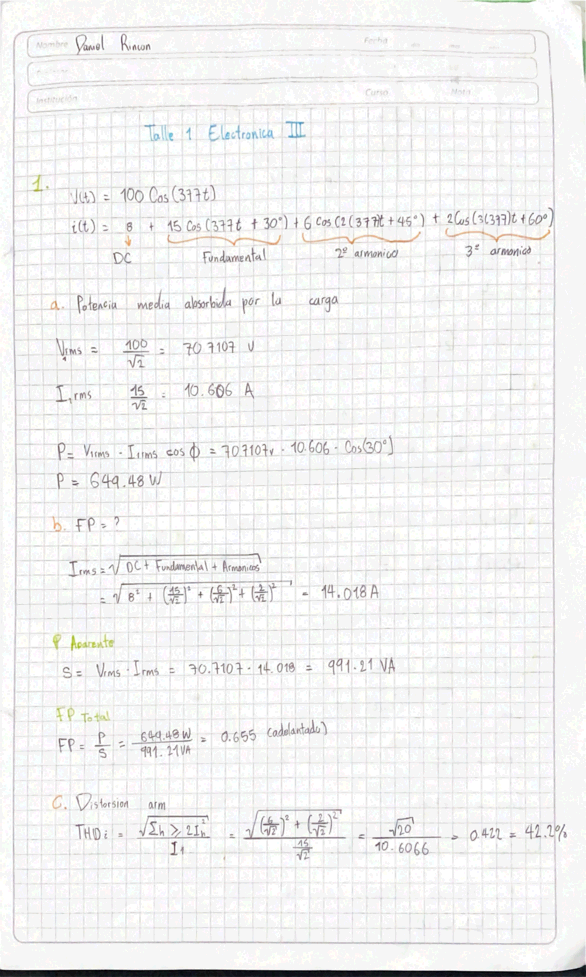 Nombre Daniel Rincon Fecha
Institución Curso Nota
Talle 1 Electronica III
1.
V(t) = 100 Cos(377t)
i(t) = 8 + 15 Cos(377t + 30°) + 6 Cos(2(377)t + 45°) + 2 Cos(3(377)t + 60°)
DC Fundamental 2º armonico 3º armonico
a. Potencia media absorbida por la carga
V₁rms = 100/√2 = 70.7107 V
I₁rms 15/√2 = 10.606 A
P = V₁rms · I₁rms cos ϕ = 70.7107v · 10.606 · Cos(30°)
P = 649.48 W
b. FP = ?
Irms = √(DC + Fundamental + Armonicos)
= √(8² + (15/√2)² + (6/√2)² + (2/√2)²) = 14.018 A
P Aparente
S = Vrms · Irms = 70.7107 · 14.018 = 991.21 VA
FP Total
FP = P/S = 649.48 W/991.21 VA = 0.655 (adelantado)
C. Distorsion arm
THDi = √(Σh ≥ 2 Ih²)/I₁ = √((6/√2)² + (2/√2)²)/(15/√2) = √20/10.6066 = 0.422 = 42.2%